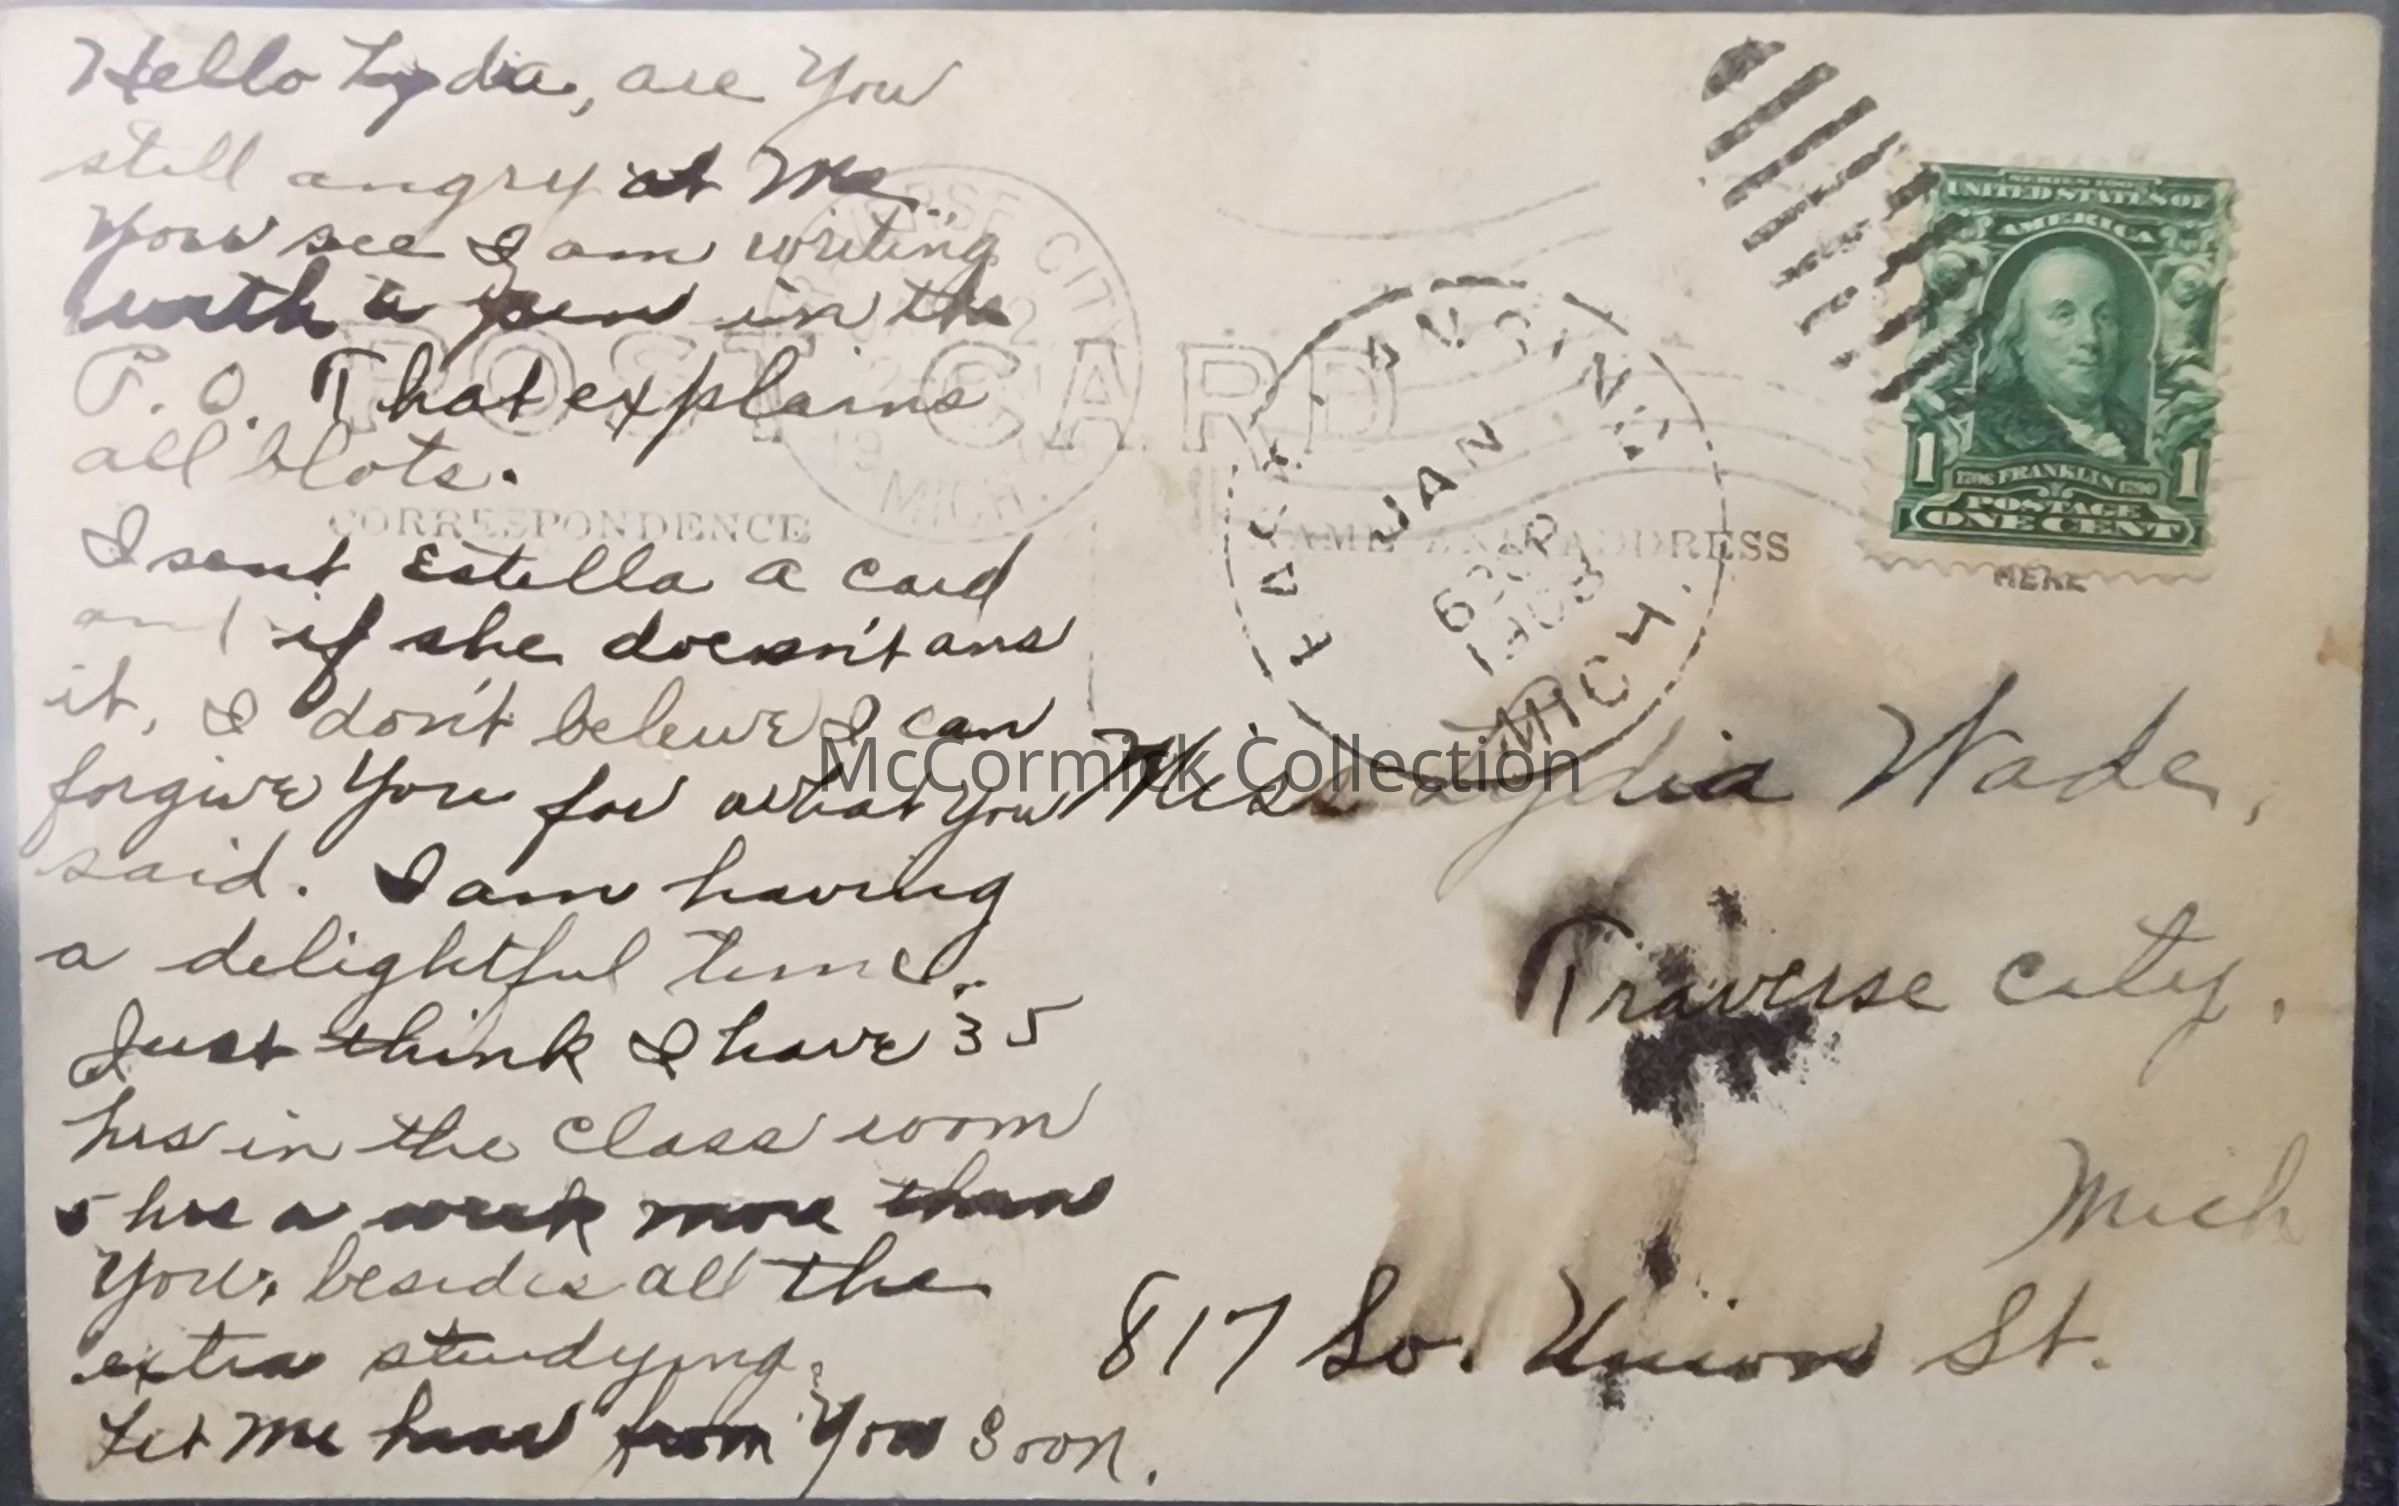 Hello Lydia, are You
still angry at Me.
You see I am writing
with a pen in the
P. O. That explains
all blots.
I sent Estella a card
and if she doesn't ans
it, I don't beleive I can
forgive You for what you
said. I am having
a delightful time.
Just think I have 35
hrs in the class room
5 hrs a week more than
You, besides all the
extra studying.
Let Me hear from You Soon.
POST CARD
CORRESPONDENCE
NAME AND ADDRESS
TRAVERSE CITY
MICH.
EAST LANSING
JAN
630P
MICH.
SERIES 1902
UNITED STATES OF
AMERICA
1706 FRANKLIN 1790
POSTAGE
1 ONE CENT 1
HERE
Miss Lydia Wade,
Traverse City,
Mich
817 So. Union St.
McCormick Collection